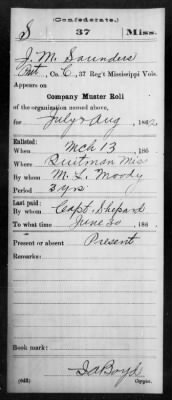 (Confederate.)
S 37 Miss.
J. M. Saunders
Pvt, Co. C, 37 Reg't Mississippi Vols.
Appears on
Company Muster Roll
of the organization named above,
for July & Aug, 1862.
Enlisted:
When Mch 13, 186 .
Where Quitman Mis
By whom M. L. Moody
Period 3 yrs
Last paid:
By whom Capt. Shepard
To what time June 30, 186 .
Present or absent Present
Remarks:
Book mark:
Boyd
(642) Copyist.